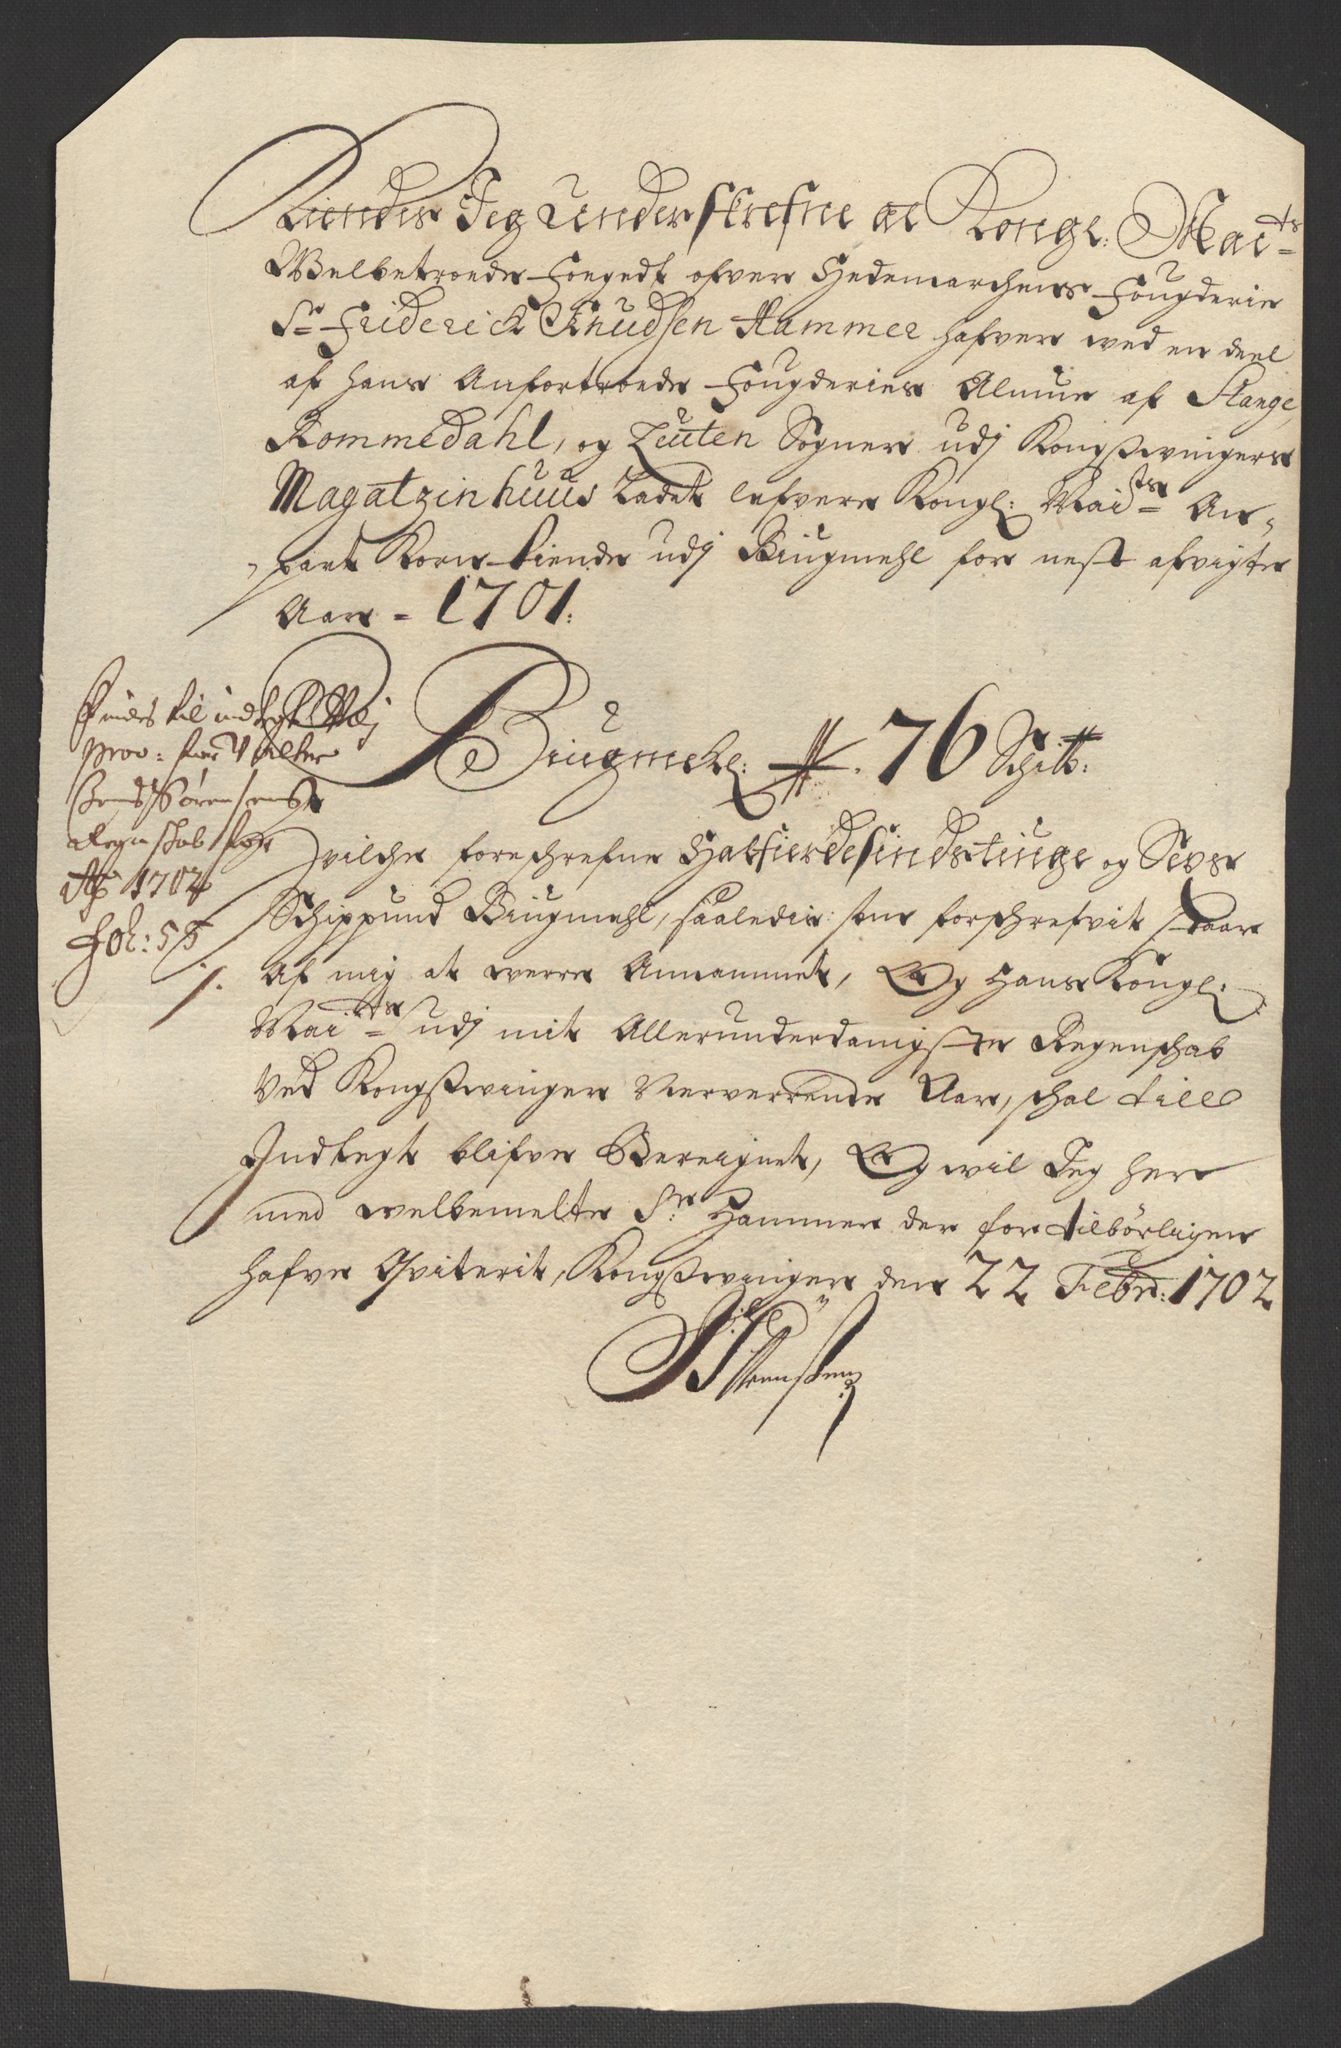 Kiendes Jeg Underskrefne at Kongl: Mai:ts
Welbetroede Foegedt ofver Hedemarchens Fougderie
Sr Friderich Knudsen Hammer hafver wed en deel
af hans Anfortroede Fougderies Almue af Stange,
Rommedahl, og Leuten Sogner udj Kongszwingers
Magatzinhuus Ladet lefvere Kongl: Mai:ts An-
part Korn Tiende udj Biugmehl for nest afvigte
Aar - 1701:
Biugmehl: 76 Sch℔:
Hvilche foreschrefne Halfierdesindstiuge og Sex
Schippund Biugmehl, saaledis som forschrefvit staar
Af mig at were Annammet, Og Hans Kongl:
Mai:ts udj mit Allerunderdanigste Regenschab
Ved Kongszwinger Nerverende Aar, schal till
Indtegt blifve Bereignet, Og wil Jeg her
med welbemelte Sr Hammer der for tilbörligen
hafve Qviterit, Kongszwinger den 22 Febr: 1702
Findes til indtegt
Prov:
Sörensens
Regenschab for
Ao 1702
Fol: 55